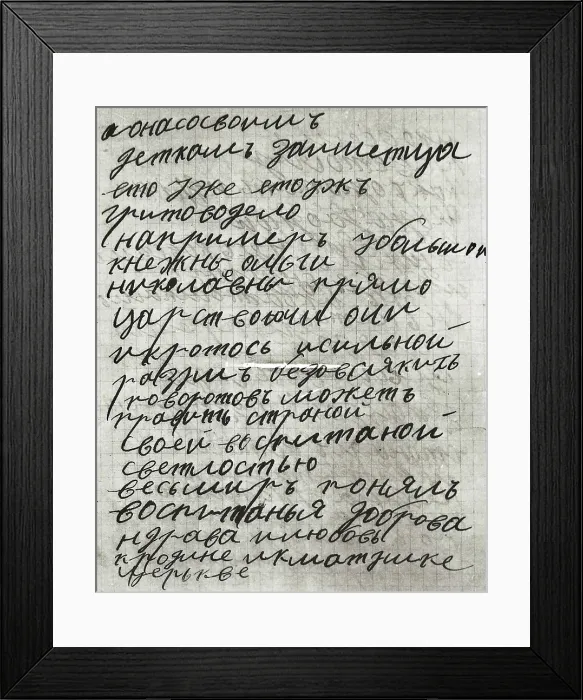 а онасосвоимъ
деткамъ занметца
ето уже етоужъ
ритоводело
например ъ убольшой
княжны ольги
николаевны прямо
царствоючи очи
икротось исильной
разумъ бездовсякить
поворотовъ можетъ
править страной
своей воспитаной
светлостью
весьмиръ понялъ
воспитанья доброва
ндрава илюбовь
кродине икматушке
церькве